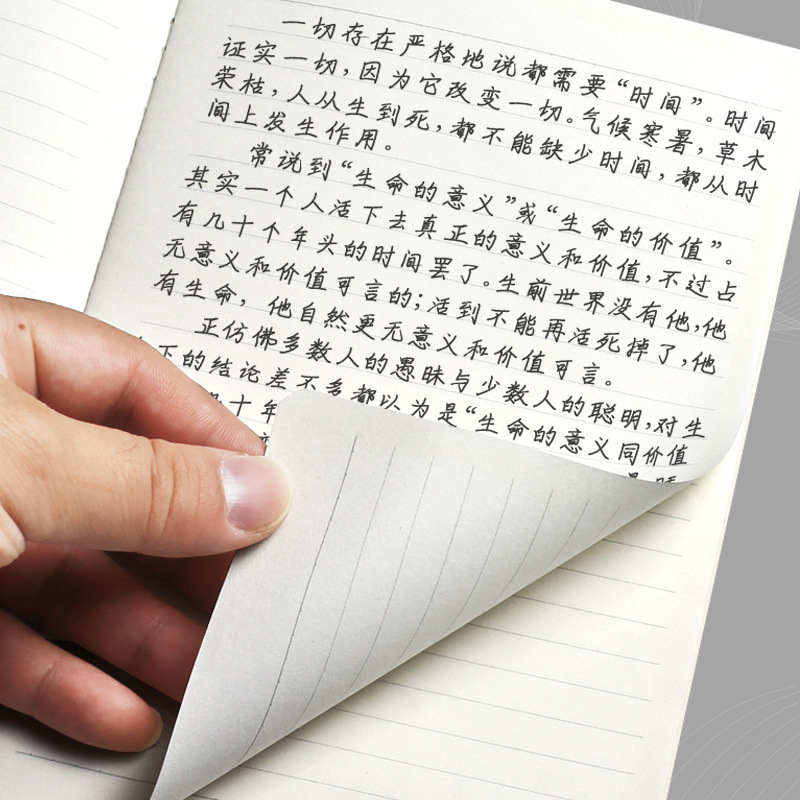 一切存在严格地说都需要“时间”。时间
证实一切,因为它改变一切。气候寒暑,草木
荣枯,人从生到死,都不能缺少时间,都从时
间上发生作用。
常说到“生命的意义”或“生命的价值”。
其实一个人活下去真正的意义和价值,不过占
有几十个年头的时间罢了。生前世界没有他,他
无意义和价值可言的;活到不能再活死掉了,他
有生命,他自然更无意义和价值可言。
正仿佛多数人的愚昧与少数人的聪明,对生
下的结论差不多都以为是“生命的意义同价值
十年